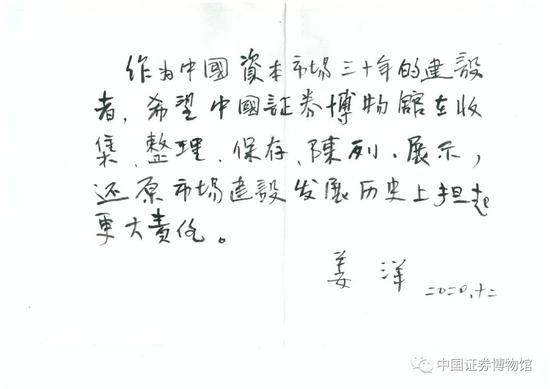 作为中國資本市场三十年的建設
者，希望中國証券博物館在收
集、整理、保存、陳列、展示，
还原市场建設发展历史上担起
更大责任。
姜洋
二〇二〇.十二
中国证券博物馆